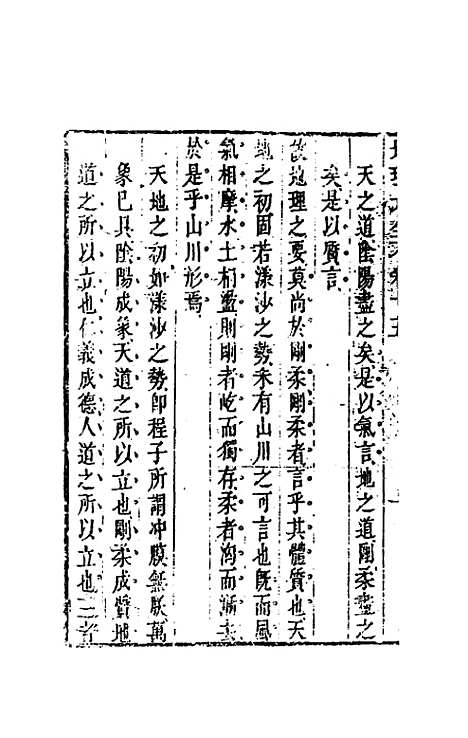 天之道陰陽盡之矣是以氣言地之道剛柔盡之
矣是以質言
故地理之要莫尚於剛柔剛柔者言乎其體質也天
地之初固若漾沙之勢未有山川之可言也既而風
氣相摩水土相盪則剛者屹而獨存柔者淘而漸去
於是乎山川形焉
天地之初如漾沙之勢卽程子所謂冲膜無朕萬
象已具陰陽成象天道之所以立也剛柔成質地
道之所以立也仁義成德人道之所以立也三者